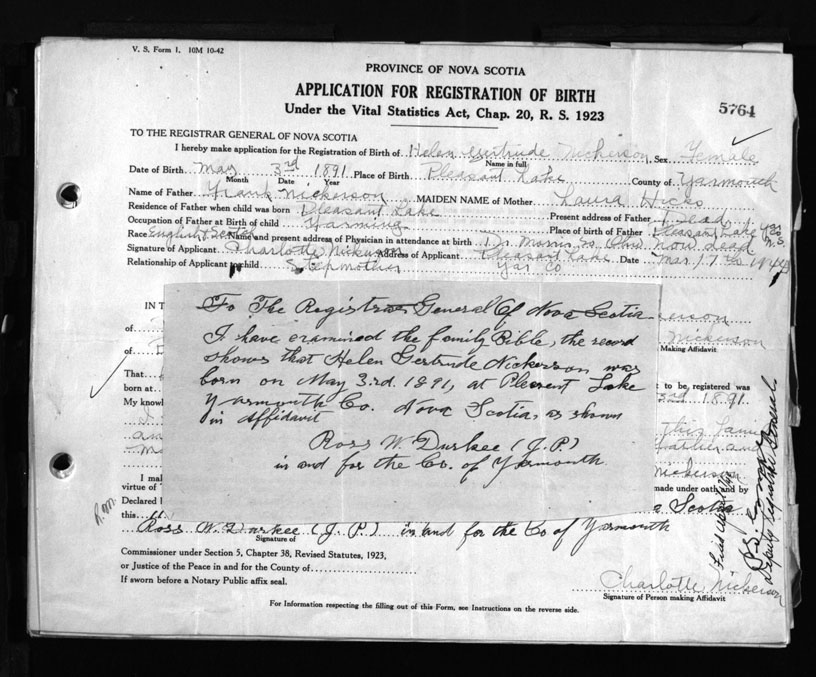 V. S. Form 1. 10M 10-42
PROVINCE OF NOVA SCOTIA
APPLICATION FOR REGISTRATION OF BIRTH
Under the Vital Statistics Act, Chap. 20, R. S. 1923
5764
TO THE REGISTRAR GENERAL OF NOVA SCOTIA
I hereby make application for the Registration of Birth of Helen Gertrude Nickerson, Sex Female
Name in full
Date of Birth May 3rd 1891 Place of Birth Pleasant Lake County of Yarmouth
Month Date Year
Name of Father Frank Nickerson MAIDEN NAME of Mother Laura Hicks
Residence of Father when child was born Pleasant Lake Present address of Father Dead
Occupation of Father at Birth of child Farming Place of birth of Father Pleasant Lake Yar Co N.S.
Race English Scotch Name and present address of Physician in attendance at birth Dr. Morris now dead
Signature of Applicant Charlotte Nickerson Address of Applicant Pleasant Lake Date Mar 17
Relationship of Applicant to child Stepmother Yar Co
IN T
of
of
Nickerson
Making Affidavit
To The Registrar General Of Nova Scotia
I have examined the family Bible, the record
shows that Helen Gertrude Nickerson was
born on May 3rd. 1891, at Plesent Lake
Yarmouth Co. Nova Scotia, as shown
in affidavit
Ross W. Durkee (J.P.)
in and for the Co. of Yarmouth
That
to be, registered was
born at
3rd 1891.
My know
I mal
made under oath and by
virtue of
Declared
Scotia
this
Ross W. Durkee (J. P.) in and for the Co of Yarmouth
Signature of
Commissioner under Section 5, Chapter 38, Revised Statutes, 1923,
or Justice of the Peace in and for the County of
If sworn before a Notary Public affix seal.
Charlotte Nickerson
Signature of Person making Affidavit
For Information respecting the filling out of this Form, see Instructions on the reverse side.
Deputy Registrar General